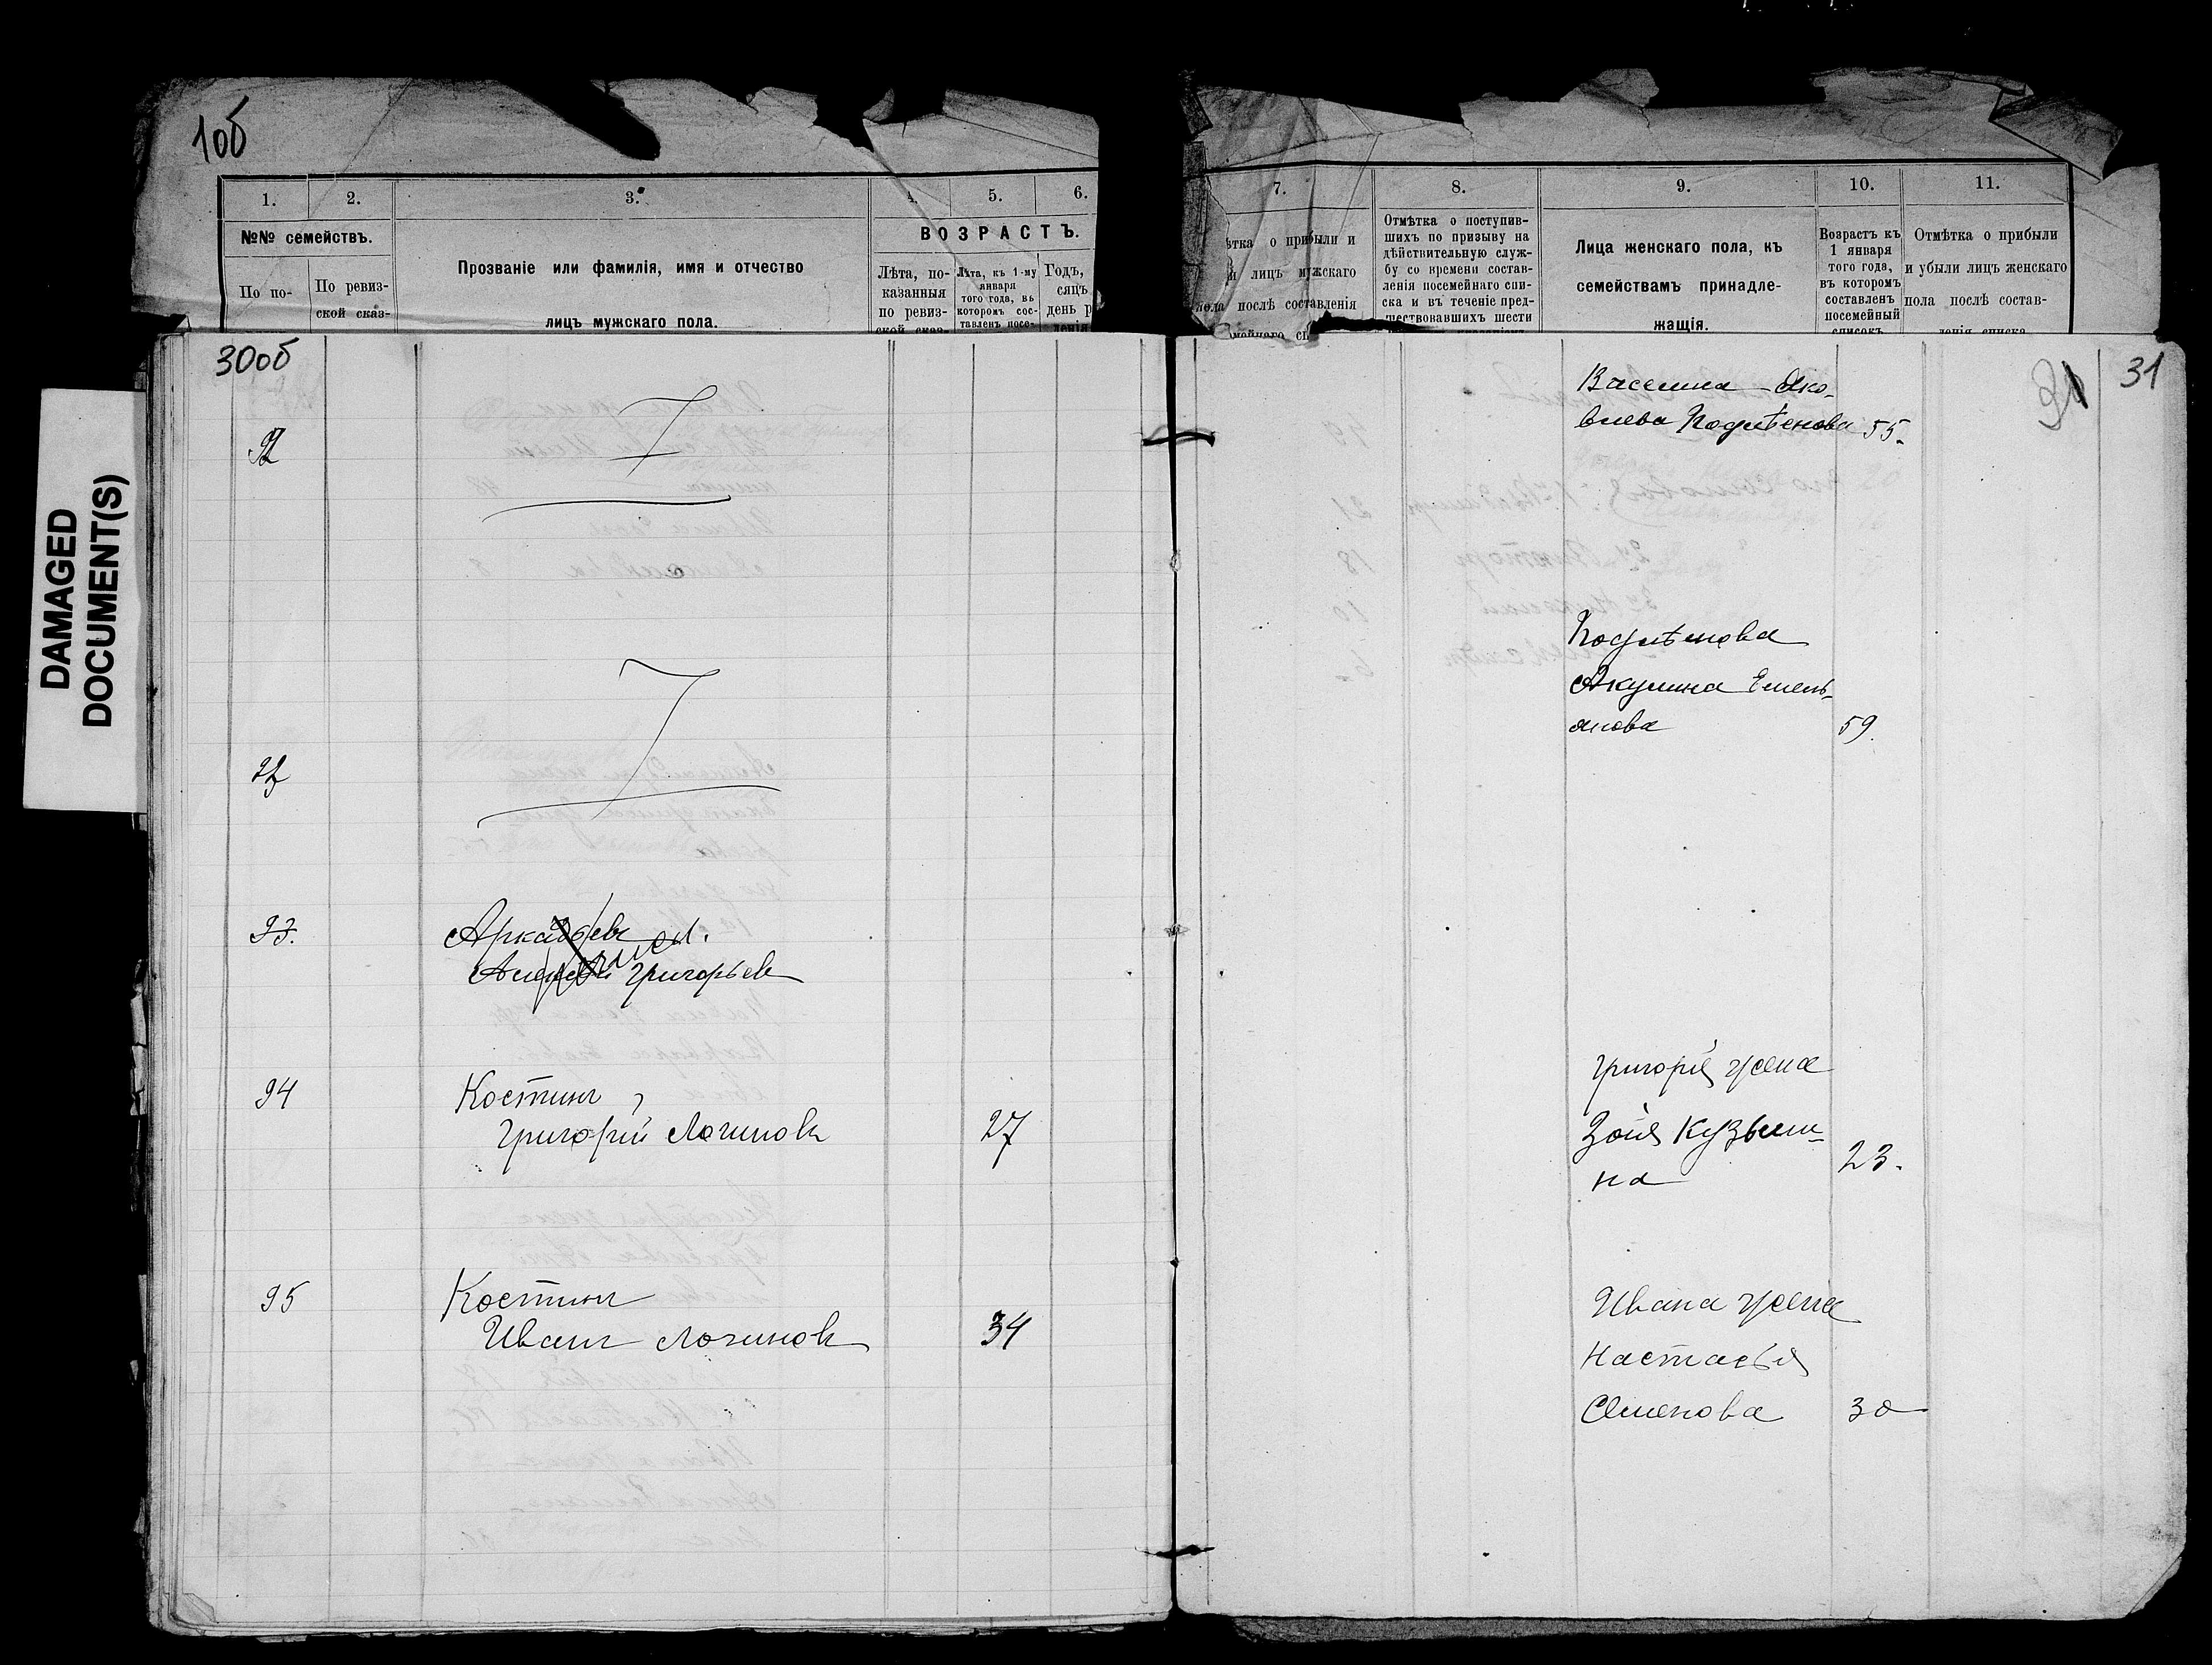 10б
1.
2.
3.
4.
5.
6.
№№ семействъ.
ВОЗРАСТЪ.
По по-
По ревиз-
ской сказ-
Прозваніе или фамилія, имя и отчество
лицъ мужскаго пола.
Лѣта, по-
казанныя
по ревиз-
ской сказ-
Лѣта, къ 1-му
января
того года, въ
которомъ сос-
тавленъ посе-
Годъ,
сяцъ
день р
7.
8.
9.
10.
11.
ѣтка о прибыли и
и лицъ мужскаго
пола послѣ составленія
Отмѣтка о поступив-
шихъ по призыву на
дѣйствительную служ-
бу со времени состав-
ленія посемейнаго спи-
ска и въ теченіе пред-
шествовавшихъ шести
Лица женскаго пола, къ
семействамъ принадле-
жащія.
Возрастъ къ
1 января
того года,
въ которомъ
составленъ
посемейный
списокъ
Отмѣтка о прибыли
и убыли лицъ женскаго
пола послѣ состав-
ленія списка
DAMAGED
DOCUMENT(S)
30об
93.
Аркадьевъ
Алексѣй Григорьев
94
Костинъ,
Григорій Логиновъ 27
95
Костинъ
Иванъ Логиновъ 34
31
Василиса Яко-
влева Кодитенова 55.
Кодитенова
Акулина Емель-
янова 59.
Григорія жена
Зоія Кузьми-
на 23.
Ивана жена
Настасья
Семенова 30